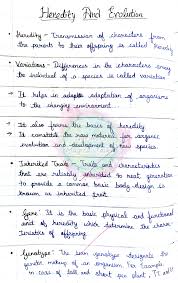 Heredity And Evolution
• Heredity - Transmission of characters from
the parents to their offspring is called Heredity
• Variations - Differences in the characters among
the individual of a species is called variation
→ It helps in adaptation of organisms
to the changing environment.
→ It also forms the basis of heredity
→ It constitute the raw material for organic
evolution and development of new species
• Inherited Traits - Traits and characteristics
that are reliably inherited to next generation
to provide a common basic body design is
known as inherited trait.
• Gene: It is the basic physical and functional
unit of heredity which determine the charac-
teristics of offspring
• Genotype: The term genotype designate the
genetic makeup of an organism. For Example,
in case of tall and short pea plant,